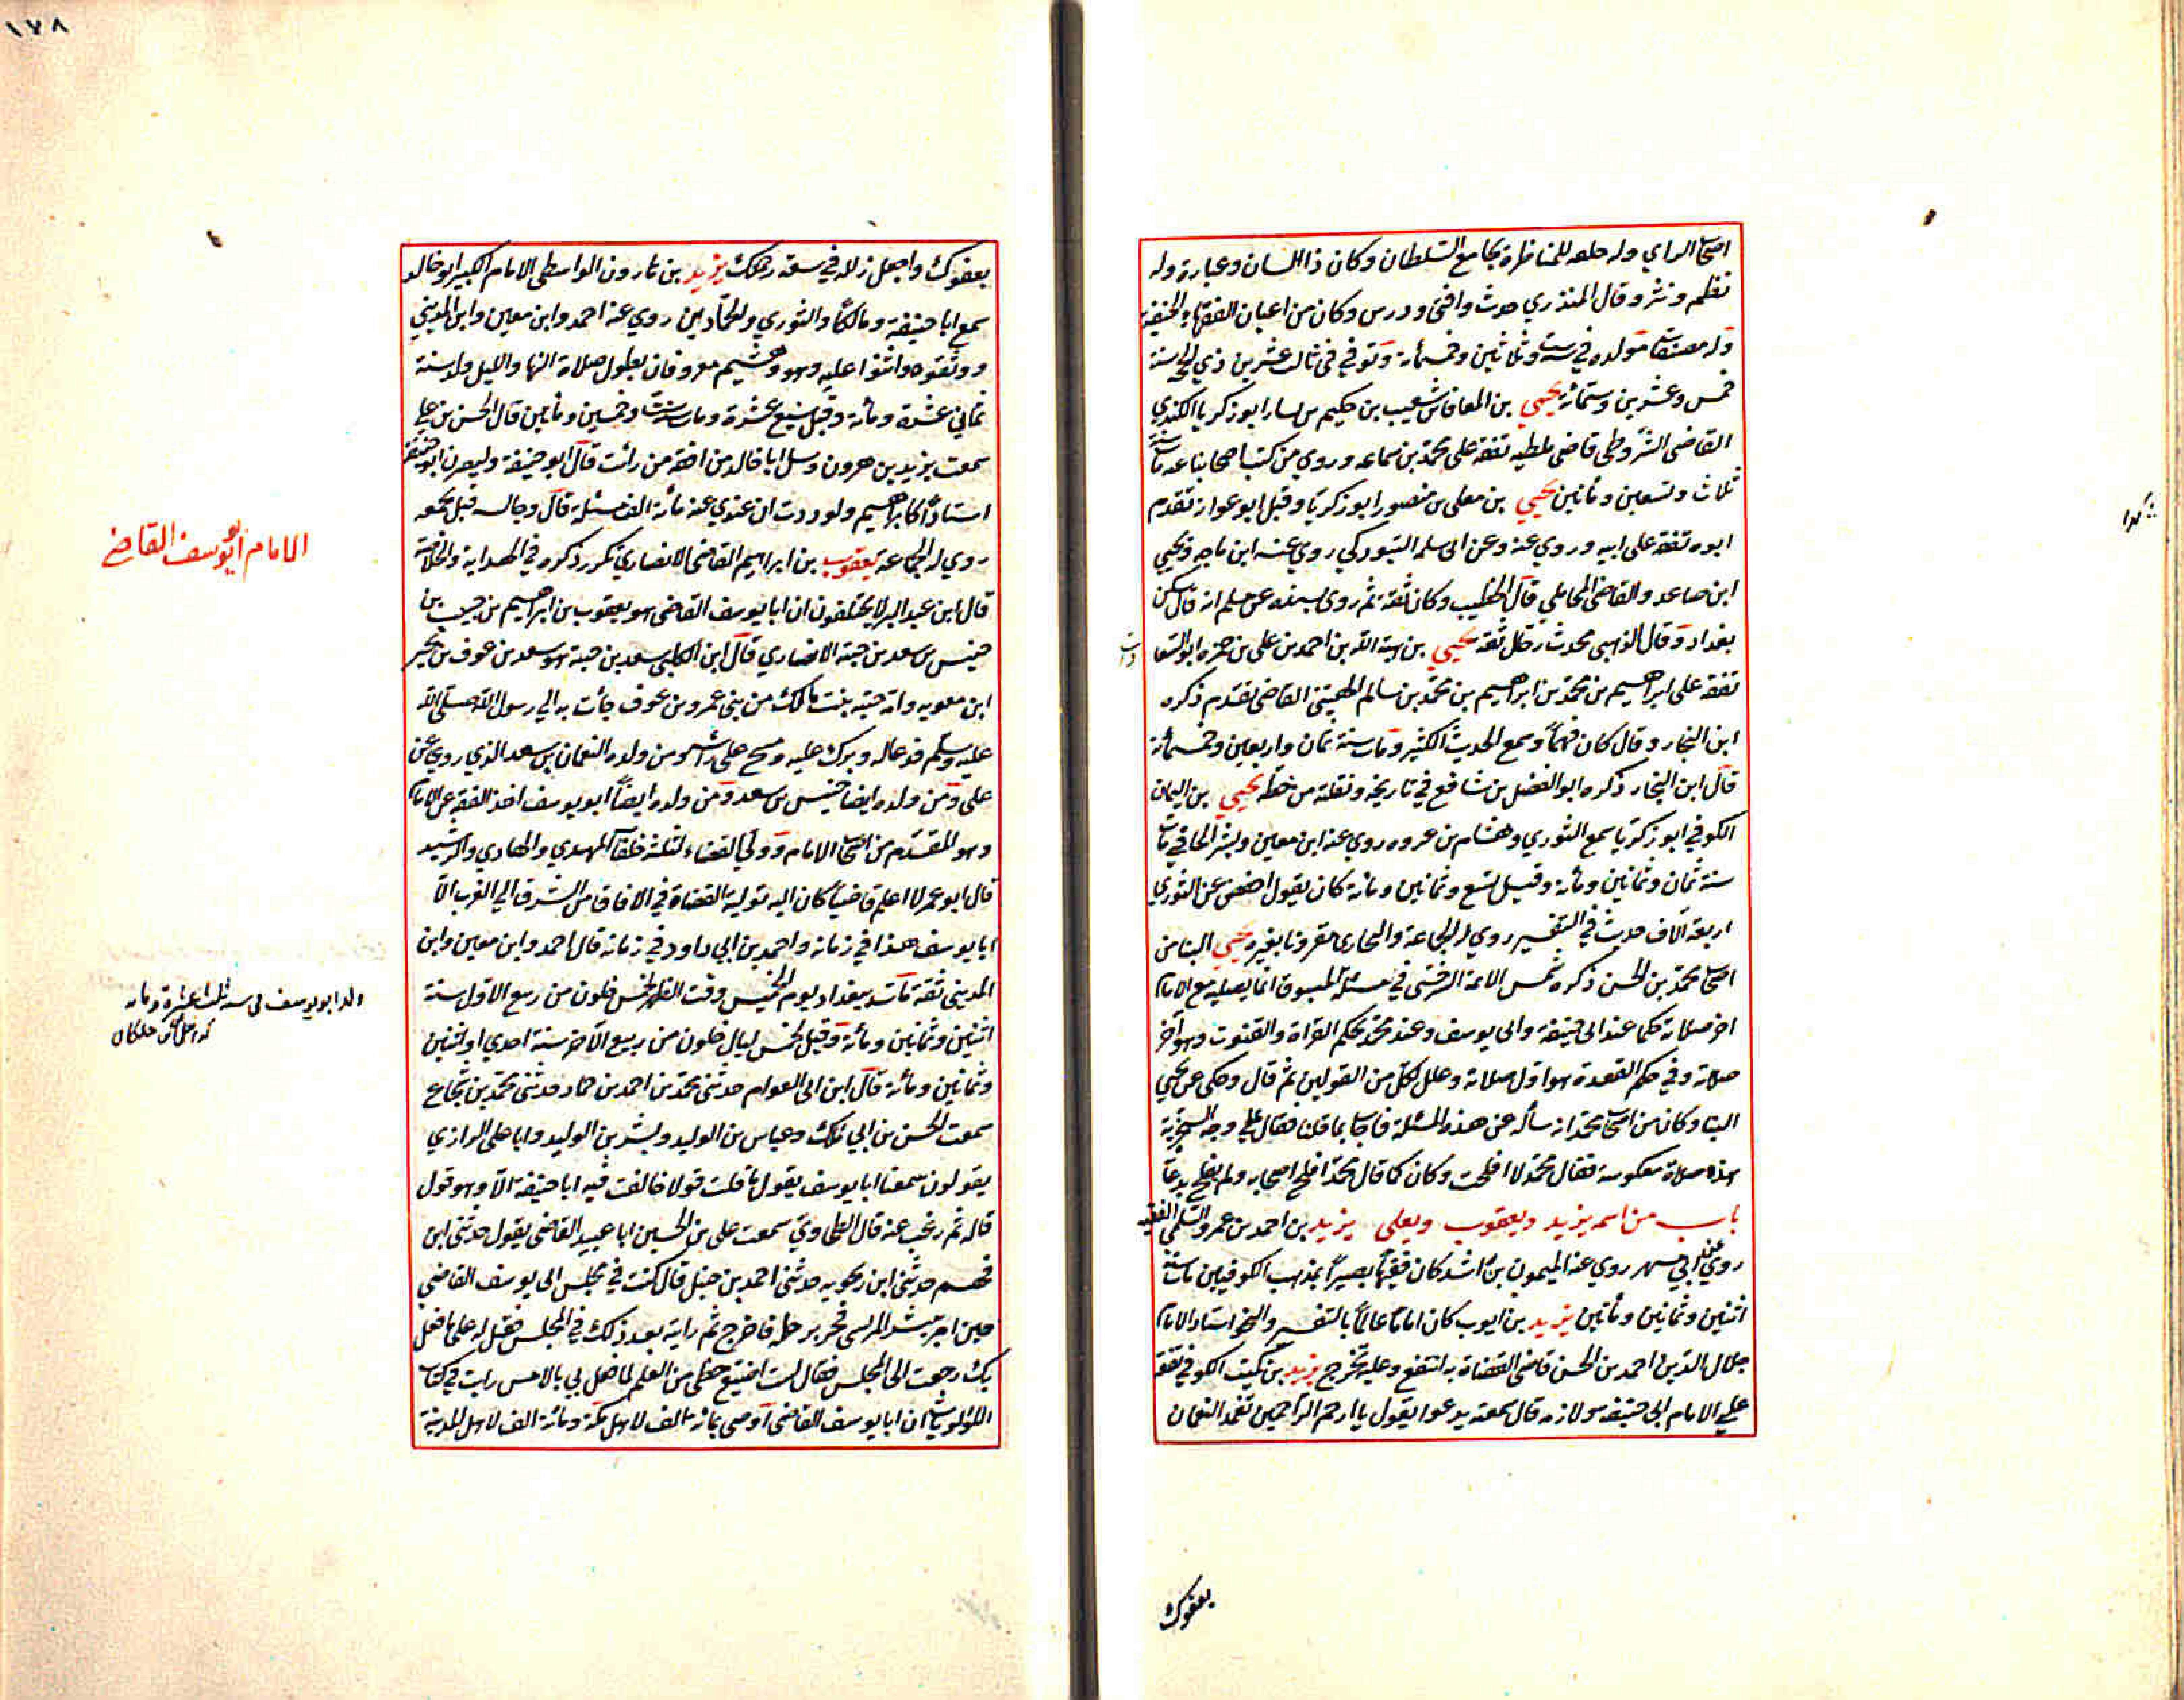 اصحاب الراي وله حلقه للمناظرة بجامع السلطان وكان ذا لسان وعبارة وله
نظم ونثر وقال المنذري حدث وافتى ودرس وكان من اعيان الفقهاء الحنفية
وله مصنفات مولده في سنة ست وثلاثين وخمسمأة وتوفي في ثالث عشرين ذي الحجة سنة
خمس وعشرين وستمائة يحيى بن المعافا بن شعيب بن حكيم بن يسار ابو زكريا الكندي
القاضي الشروطي قاضي ملطيه تفقه على محمد بن سماعه وروي من كتب اصحابنا عنه مات سنة
ثلاث وتسعين ومأتين يحيى بن معلى بن منصور ابو زكريا وقيل ابو عوانه تقدم
ابوه تفقه على ابيه وروي عنه وعن ابي سلمه التبوذكي روي عنه ابن ماجه ويحيى
ابن صاعد والقاضي المحاملي قال الخطيب وكان ثقة ثم روى بسنده عن مسلم انه قال سكن
بغداد وقال الذهبي محدث رحال ثقة يحيى بن هبة الله بن احمد بن علي بن حمزه ابو السعادات
تفقه على ابراهيم بن محمد بن ابراهيم بن محمد بن سالم الهيتي القاضي تقدم ذكره
ابن النجار وقال كان فهماً وسمع الحديث الكثير ومات سنة ثمان واربعين وخمسمأة
قال ابن النجار ذكره ابو الفضل بن شافع في تاريخه ونقلته من خطه يحيى بن اليمان
الكوفي ابو زكريا سمع الثوري وهشام بن عروه روي عنه ابن معين وبشر الحافي مات
سنة ثمان وثمانين ومأة وقيل تسع وثمانين ومأة كان يقول احفظ عن الثوري
اربعة آلاف حديث في التفسير روي له الجماعة والبخاري مقرونا بغيره يحيى البنا من
اصحاب محمد بن الحسن ذكره شمس الائمة السرخسي في مسئلة المسبوق انما يصليه مع الامام
اخر صلاته حكما عند ابي حنيفة وابي يوسف وعند محمد بحكم القراة والقنوت وهو آخر
صلاته وفي حكم القعدة هو اول صلاته وعلل لكل من القولين ثم قال وحكى عن يحيى
البنا وكان من اصحاب محمد انه سأله عن هذه المسئلة فاجاب بما قلنا فقال على وجه السخرية
هذه صلاة معكوسة فقال محمد لا افلحت وكان كما قال محمد افلح اصحابه ولم يفلح بدعا
باب من اسمه يزيد ويعقوب ويعلى يزيد بن احمد بن عمرو السلمي الفقيه
روي عن ابي مسهر روي عنه الميمون بن راشد كان فقيهاً بصيراً بمذهب الكوفيين مات سنة
اثنين وثمانين ومأتين يزيد بن ايوب كان اماما عالماً بالتفسير والنحو استاد الامام
جلال الدين احمد بن الحسن قاضي القضاة به انتفع وعليه تخرج يزيد بن كميت الكوفي تفقه
علي الامام ابي حنيفه ولازمه قال سمعته يدعوا يقول يا ارحم الراحمين تغمد النعمان
بعفوك
١٧٨
بعفوك واجعل زلله في سعة رحمتك يزيد بن هارون الواسطي الامام الكبير ابو خالد
سمع ابا حنيفة ومالكاً والثوري والحمادين روي عنه احمد وابن معين وابن المديني
ووثقوه واثنوا عليه وهو وهشيم معروفان بطول صلاة النهار والليل ولد سنة
ثماني عشرة ومأة وقيل سبع عشرة ومات سنة ست وخمسين ومأتين قال الحسن بن علي
سمعت يزيد بن هرون وسئل ابا خالد من افقه من رأت قال ابو حنيفة وليصرن ابو حنيفة
استاداً كابراهيم ولوددت ان عندي عنه مأة الف مسئلة قال وجالسه قبل بجمعه
روي له الجماعة يعقوب بن ابراهيم القاضي الانصاري تكرر ذكره في الهداية والخلاصة
قال ابن عبد البر لا يختلفون ان ابا يوسف القاضي هو يعقوب بن ابراهيم بن حبيب بن
خنيس بن سعد بن حبته الانصاري قال ابن الكلبي سعد بن حبتة هو سعد بن عوف بن بحير
ابن معويه وامه حبته بنت مالك من بني عمرو بن عوف جأت به الي رسول الله صلى الله
عليه وسلم فدعا له وبرك عليه ومسح على رأسه ومن ولده النعمان بن سعد الذي روي عن
علي ومن ولده ايضا خنيس بن سعد ومن ولده ايضاً ابو يوسف اخذ الفقه عن الامام
وهو المقدم من اصحاب الامام وولي القضاء لثلثة خلفآ المهدي والهادي والرشيد
قال ابو عمر لا اعلم قاضياً كان اليه تولية القضاة في الافاق من الشرق الي الغرب الا
ابا يوسف هذا في زمانه واحمد بن ابي داود في زمانه قال احمد وابن معين وابن
المديني ثقة مات ببغداد يوم الخميس وقت الظهر لخمس خلون من ربيع الاول سنة
اثنين وثمانين ومأة وقيل لخمس ليال خلون من ربيع الآخر سنة احدي او اثنين
وثمانين ومائة قال ابن ابي العوام حدثني محمد بن احمد بن حماد حدثني محمد بن شجاع
سمعت الحسن بن ابي مالك وعباس بن الوليد وبشر بن الوليد وابا علي الرازي
يقولون سمعنا ابا يوسف يقول ما قلت قولا خالفت فيه ابا حنيفة الا وهو قول
قاله ثم رغب عنه قال الطحاوي سمعت علي بن الحسين ابا عبيد القاضي يقول حدثني ابن
فهم حدثني ابن زنجويه حدثني احمد بن حنبل قال كنت في مجلس ابي يوسف القاضي
حين امر ببشر المريسي فجر برجله فاخرج ثم رايته بعد ذلك في المجلس فقيل له على ما فعل
بك رجعت الى المجلس فقال لست اضيع حظي من العلم لما فعل بي بالامس رايت في كتاب
اللؤلويات ان ابا يوسف القاضي اوصى بمائة الف لاهل مكة ومائة الف لاهل المدينة
الامام ابو يوسف القاضي
ولد ابو يوسف في سنة ثلث عشرة ومائه